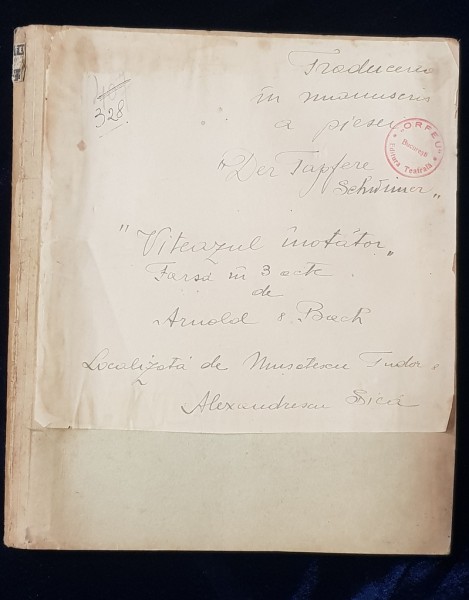 328.
Traducerea
în manuscris
a piesei
"ORFEU"
București
Editura Teatrală
"Der Tapfere
Schwimmer„
"Viteazul înotător„
Farsă în 3 acte
de
Arnold & Bach
Localizată de Mușatescu Tudor.
Alexandrescu Sică